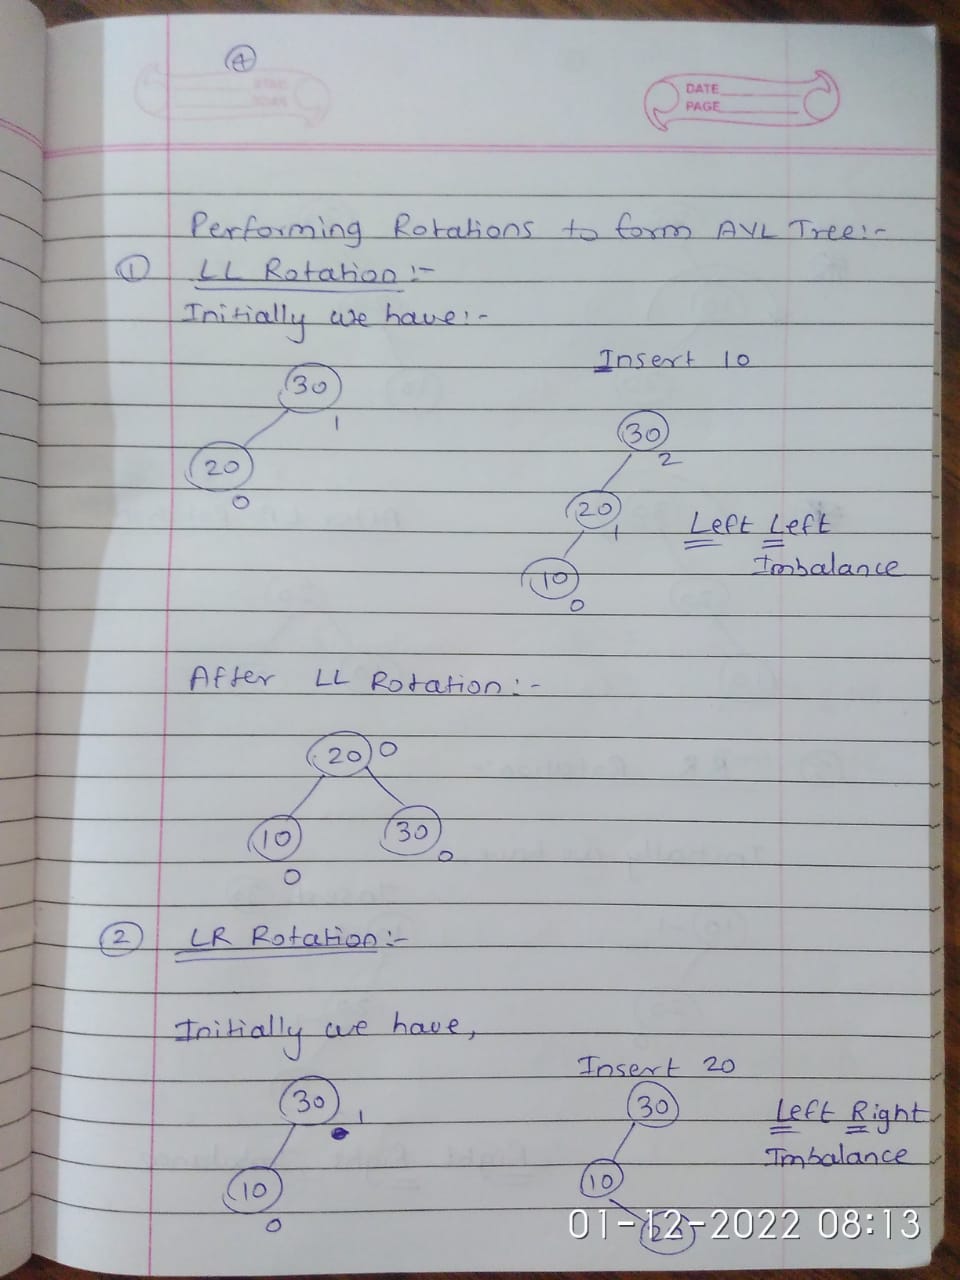 4
DATE
PAGE
Performing Rotations to form AVL Tree:-
1 LL Rotation:-
Initially we have:-
Insert 10
30
1
20
0
30
2
20
1
10
0
Left Left
Imbalance
After LL Rotation:-
20 0
10
0
30
0
2 LR Rotation:-
Initially we have,
Insert 20
30
1
10
0
30
10
Left Right
Imbalance
01-12-2022 08:13